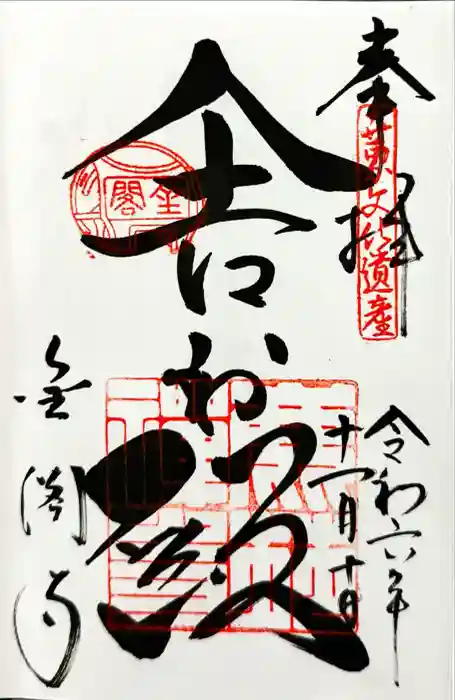 奉拝
世界文化遺産
令和六年
十一月十日
舎利殿
金閣
金閣寺